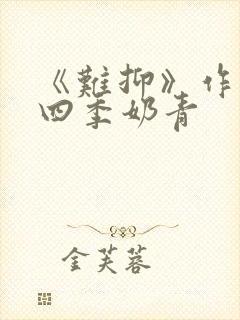 《難抑》作
四季奶青
金芙蓉